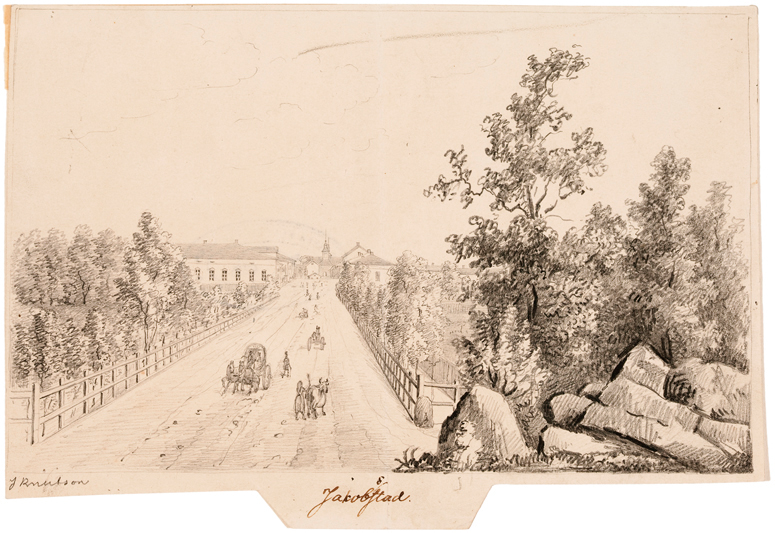 J Knutson
Jakobstad.